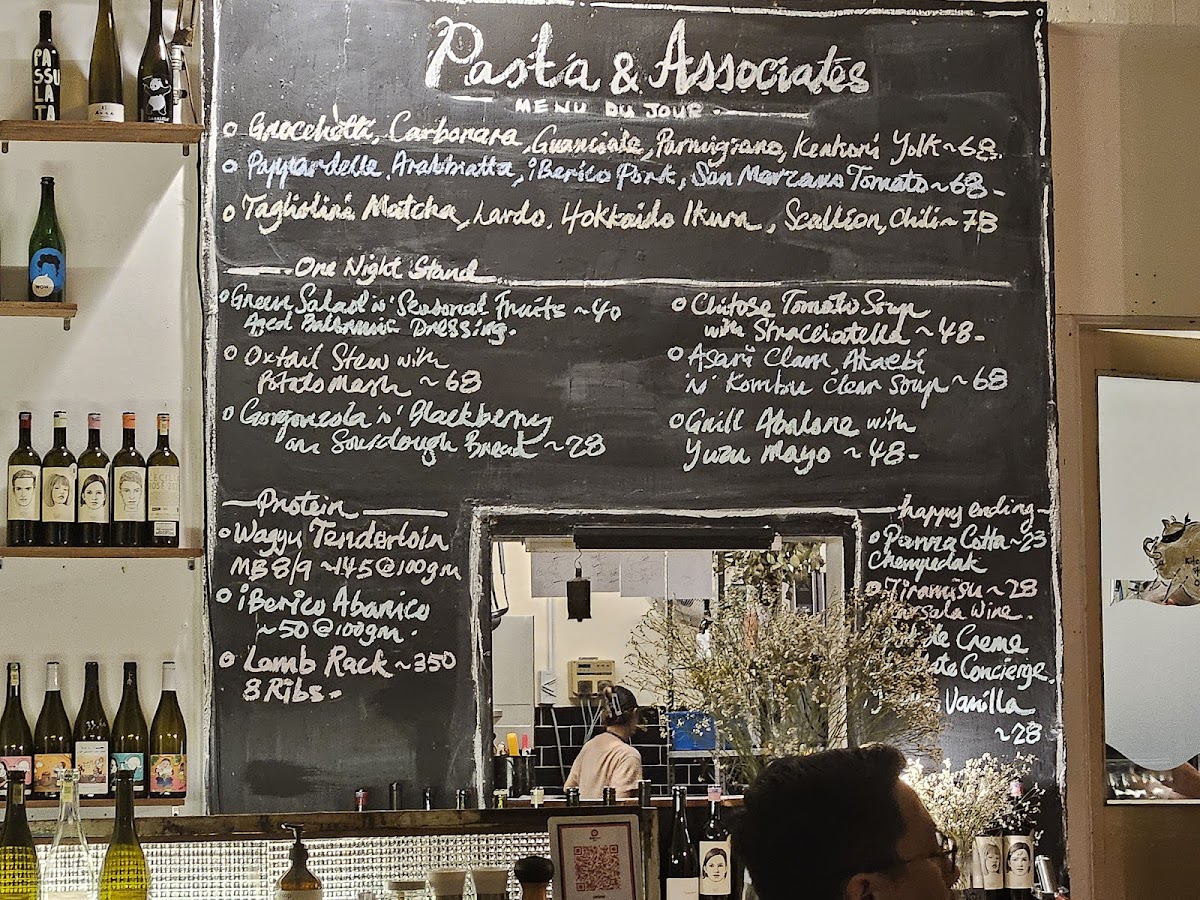 PASSULATA
Pasta & Associates
MENU DU JOUR
Grocchetti, Carbonara, Guanciale, Parmigiano, Kenkori Yolk ~ 68.
Pappardelle, Arabbiatta, iBerico Pork, San Marzano Tomato ~ 68 -
Tagliolini Matcha, Lardo, Hokkaido Ikura, Scallion, Chili ~ 78
One Night Stand
Green Salad 'n' Seasonal Fruits ~ 40
Aged Balsamic Dressing.
Oxtail Stew with
Potato Mash ~ 68
Gorgonzola 'n' Blackberry
on Sourdough Bread ~ 28
Chitose Tomato Soup
with Stracciatella ~ 48 -
Asari Clam, Akaebi
'n' Kombu Clear Soup ~ 68
Grill Abalone with
Yuzu Mayo ~ 48 -
Protein
Wagyu Tenderloin
MB 8/9 ~ 145 @ 100gm
iBerico Abanico
~ 50 @ 100gm.
Lamb Rack ~ 350
8 Ribs -
happy ending
Panna Cotta ~ 23
Chempedak
Tiramisu ~ 28
Marsala Wine.
Creme
Concierge.
Vanilla
~ 28